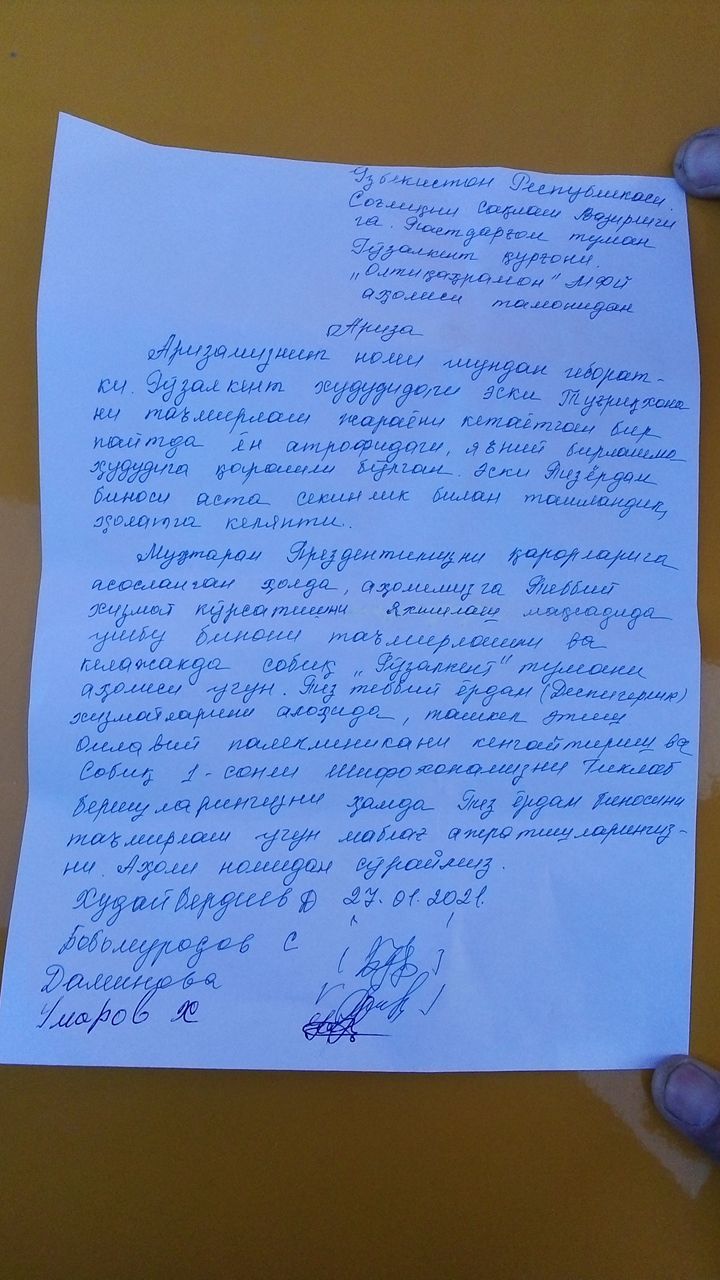 Ўзбекистон Республикаси
Соғлиқни Сақлаш Вазирлиги
га. Пастдарғом туман
Гўзалкент қурғони.
"Олтиқаҳрамон" МФЙ
аҳолиси томонидан
Ариза
Аризамизнинг номи шундан иборат-
ки. Гўзалкент худудидаги эски Туғриқхона
ни таъмирлаш жараёни кетаётган бир
пайтда ён атрофидаги, яъний бирлашма
ҳудудига қарашли бўлган. Эски Тезёрдам
биноси аста секинлик билан ташландиқ
ҳолатга келяпти.
Муҳтарам Президентимизни қарорларига
асосланган ҳолда, аҳолимизга Теббий
хизмат кўрсатишни яхшилаш мақсадида
ушбу бинони таъмирлашни ва
келажакда собиқ "Гўзалкент" тумани
аҳолиси учун. Тез теббий ёрдам
хизматларини алоҳида, ташкел этиш
Оилавий палекленикани кенгайтириш ва
Собиқ 1-сонли Шифохонамизни Тиклаб
беришларингизни ҳамда Тез ёрдам биносини
таъмирлаш учун маблағ ажратишларингиз-
ни. Аҳоли номидан сўраймиз.
Худайбердиев Д 27.01.2021.
Бобомуродов С
Даминова
Умаров Х